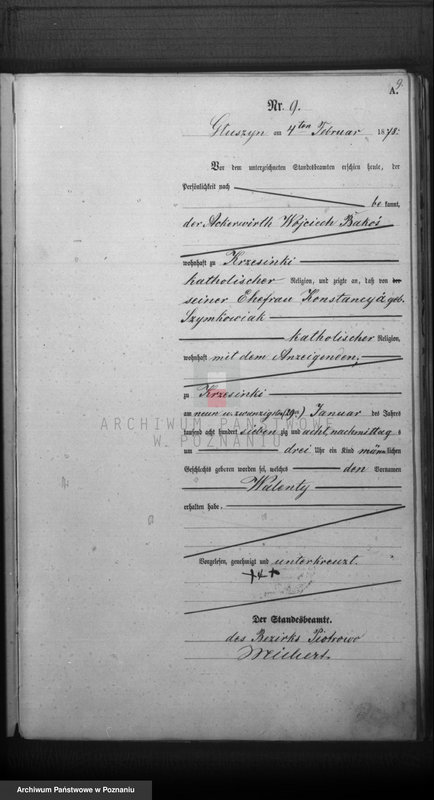 9.
A.
Nr. 9.
Gluszyn am 4ten Februar 1878.
Vor dem unterzeichneten Standesbeamten erschien heute, der
Persönlichkeit nach
be kannt,
der Ackerwirth Wojciech Bakoś
wohnhaft zu Krzesinki
katholischer Religion, und zeigte an, daß von der
seiner Ehefrau Konstancya geb.
Szymkowiak
katholischer Religion,
wohnhaft mit dem Anzeigenden,
zu Krzesinki
am neun u. zwanzigsten (29ten) Januar des Jahres
tausend acht hundert sieben zig und acht, nachmittags
um drei Uhr ein Kind männlichen
Geschlechts geboren worden sei, welches den Vornamen
Walenty
erhalten habe.
Vorgelesen, genehmigt und unterkreuzt.
+++
Der Standesbeamte.
des Bezirks Piotrowo
ARCHIWUM PAŃSTWOWE
W POZNANIU
Archiwum Państwowe w Poznaniu